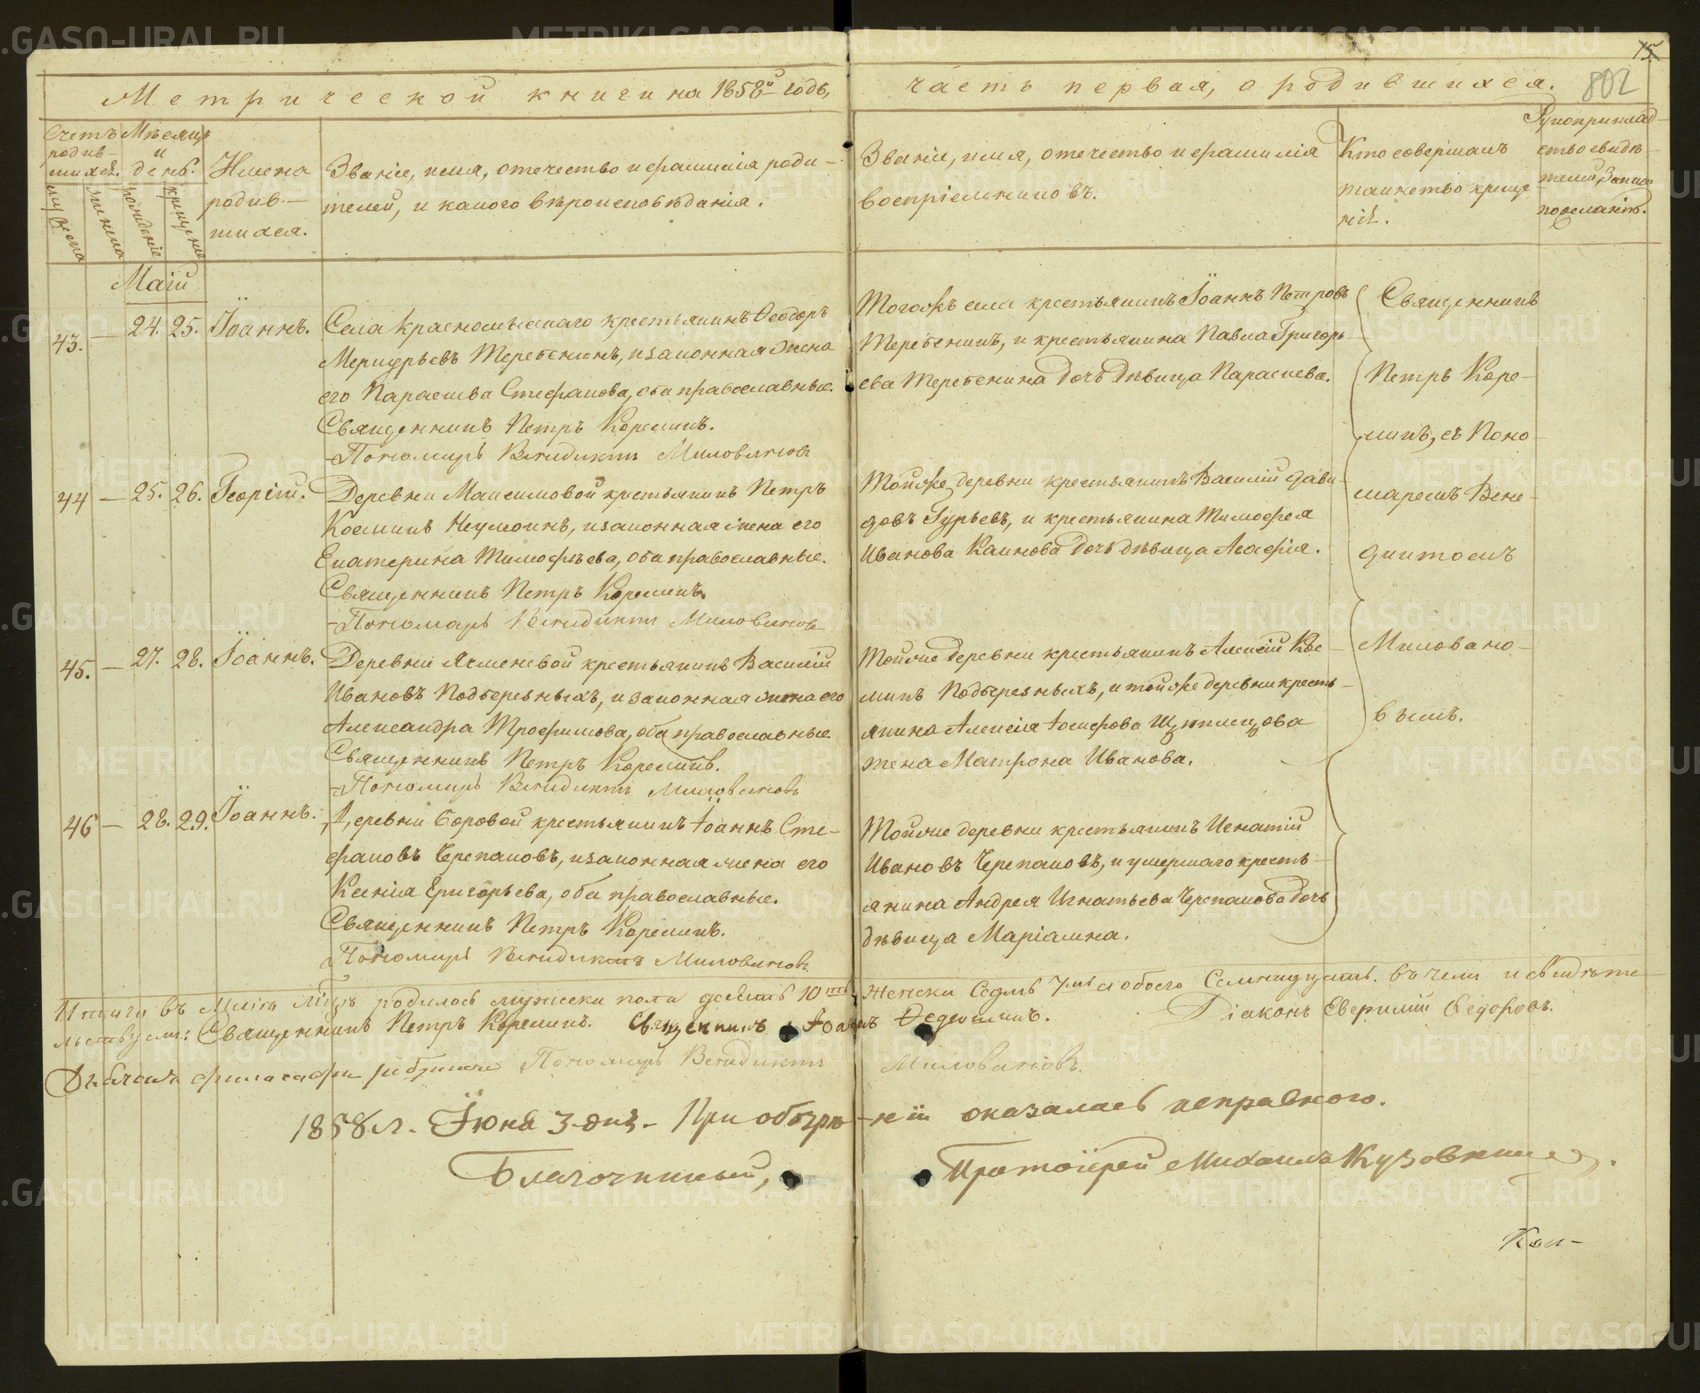 Метрической книги на 1858й годъ,
часть первая, о родившихся.
15.
802
Счетъ родив-
шихся.
Мѣсяцъ
и
день.
Имена
родив-
шихся.
Званіе, имя, отечество и фамилія роди-
телей, и какого вѣроисповѣданія.
Званіе, имя, отечество и фамилія
воспріемниковъ.
Кто совершалъ
таинство креще
нія.
Рукоприклад-
ство свидѣ-
телей записи
по желанію.
мужеска
женска
рожденіе
крещеніе
Маій
43. — 24. 25. Іоаннъ.
Села Краснослыскаго крестьянинъ Ѳеодоръ
Меркурьевъ Теребенинъ, и законная жена
его Параскева Стефанова, оба православные.
Священникъ Петръ Корелинъ.
Пономарь Венидиктъ Миловановъ
Тогожъ села крестьянинъ Іоаннъ Петровъ
Теребенинъ, и крестьянина Павла Григорь
ева Теребенина дочь дѣвица Параскева.
44 — 25. 26. Георгій.
Деревни Максимовой крестьянинъ Петръ
Косминъ Неумоинъ, и законная жена его
Екатерина Тимофѣева, оба православные.
Священникъ Петръ Корелинъ.
Пономарь Венидиктъ Миловановъ
Той же деревни крестьянинъ Василій Дави-
довъ Гурьевъ, и крестьянина Тимофея
Иванова Каинова дочь дѣвица Агафія.
45. — 27. 28. Іоаннъ.
Деревни Ячменевой крестьянинъ Василій
Ивановъ Подберезныхъ, и законная жена его
Александра Трофимова, оба православные.
Священникъ Петръ Корелинъ.
Пономарь Венидиктъ Миловановъ
Той же деревни крестьянинъ Алексій Кос-
минъ Подберезныхъ, и той же деревни кресть-
янина Алексія Іосифова
жена Матрона Иванова.
46 — 28. 29. Іоаннъ.
Деревни Боровой крестьянинъ Іоаннъ Сте-
фановъ Черепановъ, и законная жена его
Ксенія Григорьева, оба православные.
Священникъ Петръ Корелинъ.
Пономарь Венидиктъ Миловановъ
Той же деревни крестьянинъ Игнатій
Ивановъ Черепановъ, и умершаго кресть-
янина Андрея Игнатьева Черепанова дочь
дѣвица Маріамна.
Священникъ
Петръ Коре-
линъ, съ Поно
маремъ Вене-
диктомъ
Миловано-
вымъ.
Итого въ Маіѣ мцѣ родилось мужеска пола десять 10ть женска седмь 7мь а обоего семнадцать. въ чемъ и свидѣте-
льствуемъ: Священникъ Петръ Корелинъ. Священникъ Іоаннъ Ѳедюшинъ. Діаконъ Евфимій Ѳедоровъ.
Пономарь Венидиктъ Миловановъ.
1858 г. Іюня 3. дня. При обозрѣ-ніи оказалась исправною.
Благочинный, Протоіерей Михаилъ
Кол-
METRIKI.GASO-URAL.RU